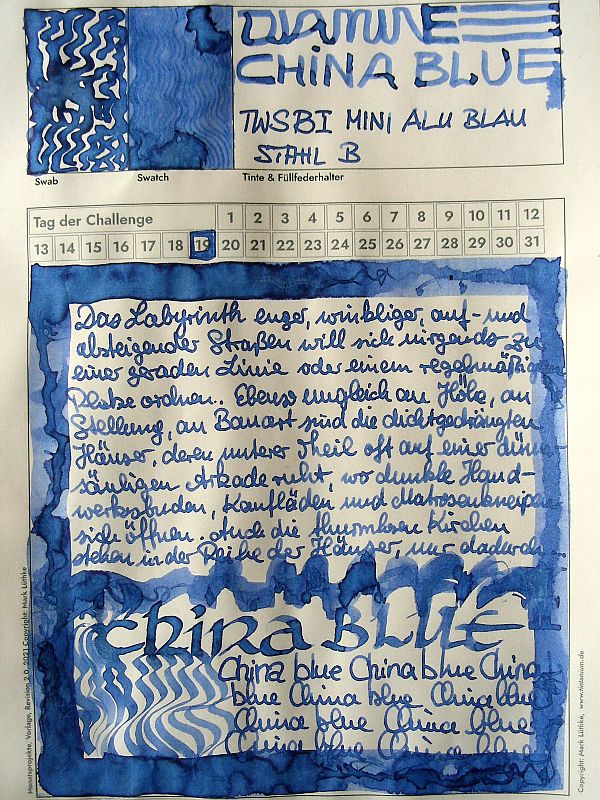 DIAMINE
CHINA BLUE
TWSBI MINI ALU BLAU
STAHL B
Swab Swatch Tinte & Füllfederhalter
Tag der Challenge 1 2 3 4 5 6 7 8 9 10 11 12
13 14 15 16 17 18 19 20 21 22 23 24 25 26 27 28 29 30 31
Das Labyrinth enger, winkliger, auf- und
absteigender Straßen will sich nirgends zu
einer geraden Linie oder einem regelmäßigen
Platze ordnen. Ebenso ungleich an Höhe, an
Stellung, an Bauart sind die dichtgedrängten
Häuser, deren unterer Theil oft auf einer dünn-
säuligen Arkade ruht, wo dunkle Hand-
werksbuden, Kaufläden und Matrosenkneipen
sich öffnen. Auch die thurmlosen Kirchen
stehen in der Reihe der Häuser, nur dadurch ...
China BLUE
China blue China blue China
blue China blue China blue
China blue China blue
China blue China blue
Monatsprojekte, Vorlage, Revision 2.0, 2021 Copyright: Mark Lüthke
Copyright: Mark Lüthke, www.tintanium.de